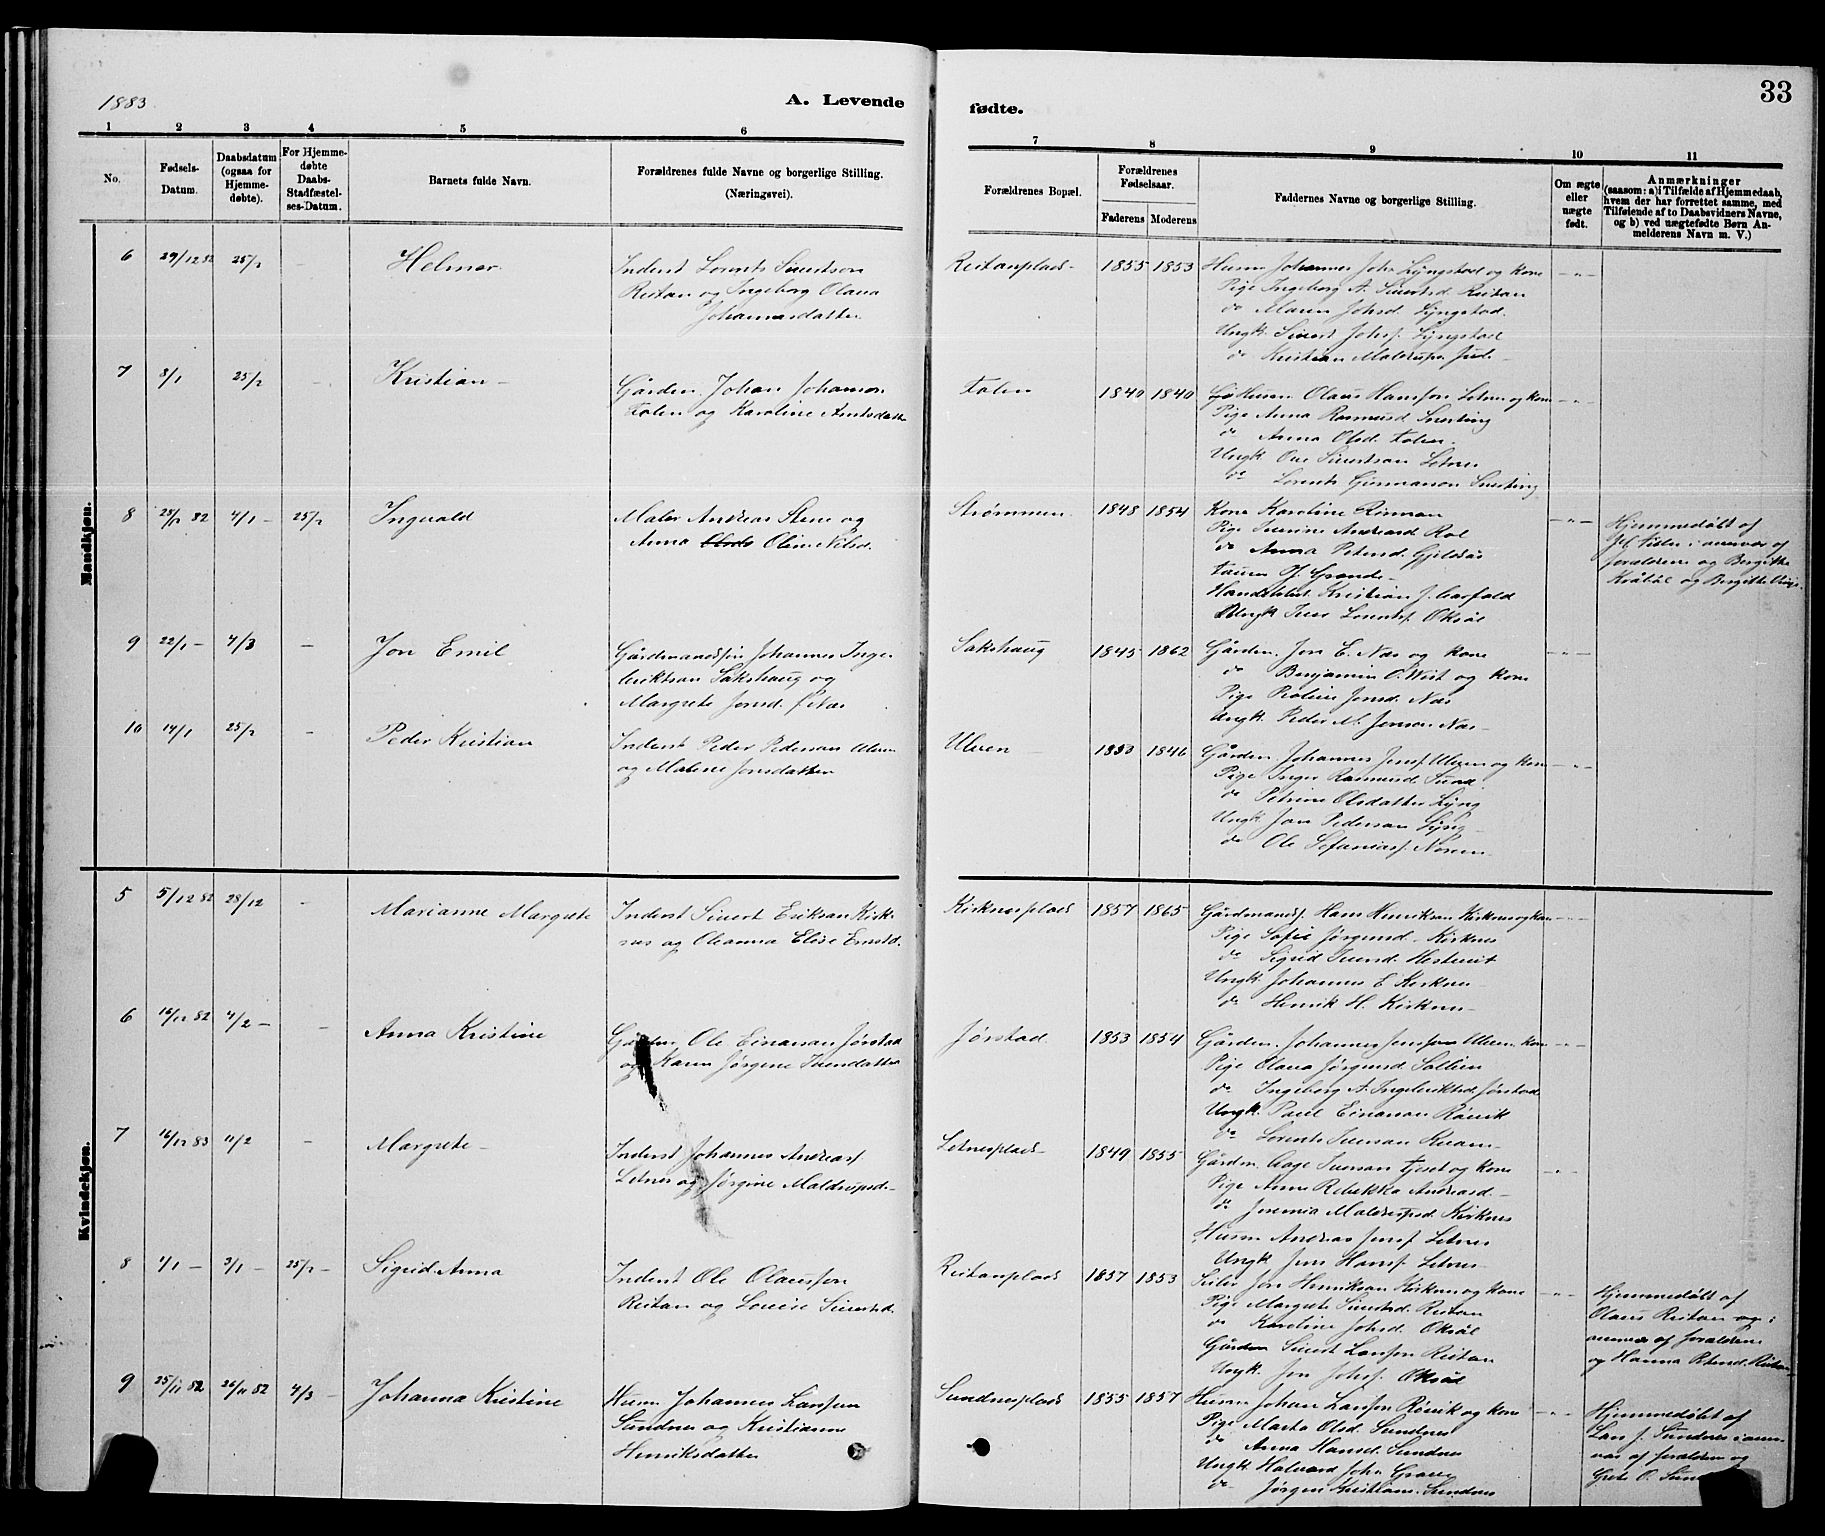 1883
A. Levende
fødte.
33
1 2 3 4 5 6 7 8 9 10 11
No.
Fødsels-Datum.
Daabsdatum (ogsaa for Hjemme-døbte).
For Hjemme-døbte Daabs-Stadfæstel-ses-Datum.
Barnets fulde Navn.
Forældrenes fulde Navne og borgerlige Stilling.
(Næringsvei).
Forældrenes Bopæl.
Forældrenes Fødselsaar.
Faderens Moderens
Faddernes Navne og borgerlige Stilling.
Om ægte eller uægte født.
Anmærkninger
(saasom: a) i Tilfælde af Hjemmedaab,
hvem der har forrettet samme, med
Tilføiende af to Daabsvidners Navne,
og b) ved uægtefødte Børn An-
melderens Navn m. V.)
Mandkjøn.
6 29/12 82 25/2 - Helmer
Inderst Lorents Sivertson
Reitan og Ingeborg Olava
Johannesdatter
Reitanplads 1855 1853
Husm Johannes Johs Lyngstad og kone
Pige Ingeborg A. Sivertsd. Reitan
do Maren Johsd. Lyngstad
Ungk. Sivert Johsf. Lyngstad
do Kristian
7 8/1 25/2 - Kristian
Gårdm. Johan Johanson
Folen og Karoline Arntsdatter
Folen 1840 1840
Husm. Olaus Hansson Letnes og kone
Pige Anna Rasmusd Snerting
do Anna Olsd. Folen
Ungk Ole Sivertson Letnes
do Lorents Gunnarson Snerting
8 82 4/1 - 25/2 Ingvald
Maler Andreas Stene og
Anna Oline Nilsd.
Strømmen 1848 1854
Kone Karoline Rinnan
Pige Andreasd Rol
do Anna Petersd. Gjeldås
J. Grande
Handelsbet. Kristian J. Aarfald
Ungk Iver Lorentsf. Oksål
Hjemmedøbt af
i overvær af
forældrene og Bergitte
Kråbøl og Bergitte
9 22/1 - 4/3 - Jon Emil
Gårdmandssøn Johannes Inge-
briktson Sakshaug og
Margrete Jonsd. f. Nås
Sakshaug 1845 1862
Gårdm. Jon E. Nås og kone
do Benjamin O. West og kone
Pige Jonsd. Nås
Ungk. Peder M. Jenson Nås
10 14/1 25/2 - Peder Kristian
Inderst Peder Pederson Ulven
og Malene Jonsdatter
Ulven 1850 1846
Gårdm. Johannes Jensf. Ulven og kone
Pige Inger Rasmusd. Sund
do Petrine Olsdatter Lyng
Ungk Jon Pederson Lyng
do Ole Stefaniasf. Noren
Kvindekjøn.
5 5/12 82 28/12 - Marianne Margrete
Inderst Sivert Erikson Kirk-
nes og Oleanna Elise Ernstd.
Kirknesplads 1857 1865
Gårdmands. Hans Henrikson Kirknes og kone
Pige Sofie Jørgensd. Kirknes
do Sigrid Iversd. Hestveit
Ungk. Johannes E Kirknes
do Henrik H. Kirknes
6 16/12 82 4/2 - - Anna Kristine
Gårdm. Ole Einarsan Jørstad
og Karen Jørgine Iversdatter
Jørstad 1853 1854
Gårdm. Johannes Ulven kone
Pige Olava Jørgensd Salliem
do Ingeborg A. Ingebriktsd. Jørstad
Ungk. Paul Einarson Røsvik
do Lorents Iverson Kvam
7 16/12 83 11/2 - Margrete
Inderst Johannes Andreasf.
Letnes og Jørgine Maldrupsd.
Letnesplads 1849 1855
Gårdm. Aage Iversan Fjeset og kone
Pige Anne Rebekka Andreasd.
do Jeremia Kirknes
Husm Andreas Jensf. Letnes
Ungk Jens Hansf. Letnes
8 1/1 - 3/1 - 25/2 - Sigrid Anna
Inderst Ole Olausson
Reitan og Lovise Sivertsd.
Reitanplads 1857 1853
Jon Henriksan Kirknes og kone
Pige Margrete Sivertsd. Reitan
do Karoline Johsd. Oksål
Gårdm Sivert Larsson Reitan
Ungk. Jon Johsf. Oksål
Hjemmedøbt af
Olaus Reitan og i
overvær af forældrene
og Hanna Petersd. Reitan
9 25/11 82 26/11 82 4/3 - Johanna Kristine
Husm Johannes Larssen
Sundnes og Kristianne
Henriksdatter
Sundnesplads 1855 1857
Husm. Johan Larsson Røsvik og kone
Pige Marta Olsd. Sundnes
do Anna Hansd. Sundnes
Ungk. Halvard Johs Grave
do Jørgen Kristians. Sundnes
Hjemmedøbt af
Lars J. Sundnes i over-
vær af forældrene og
Grete O.